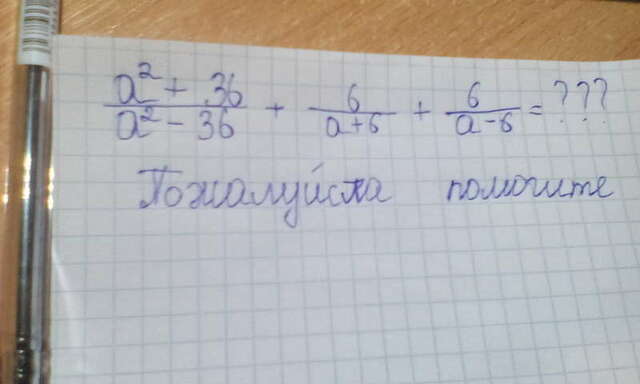 a² + 36 / a² - 36 + 6 / a+6 + 6 / a-6 = ???
Пожалуйста помогите